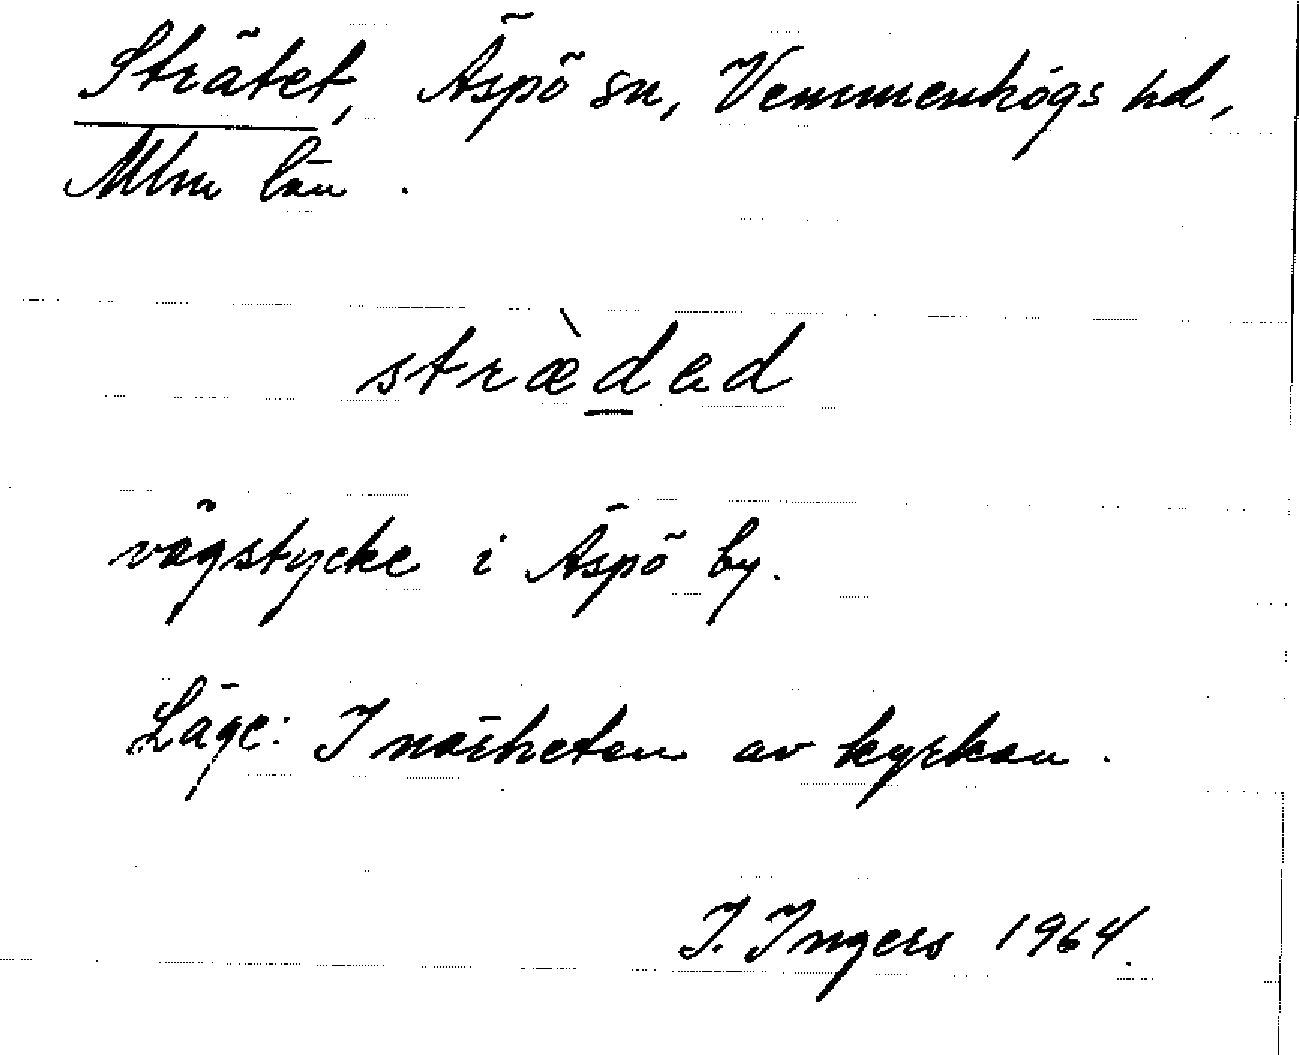 Strätet, Äspö sn, Vemmenhögs hd,
Mlm län.
stræ̀dad
vägstycke i Äspö by.
Läge: I närheten av kyrkan.
I. Ingers 1964.